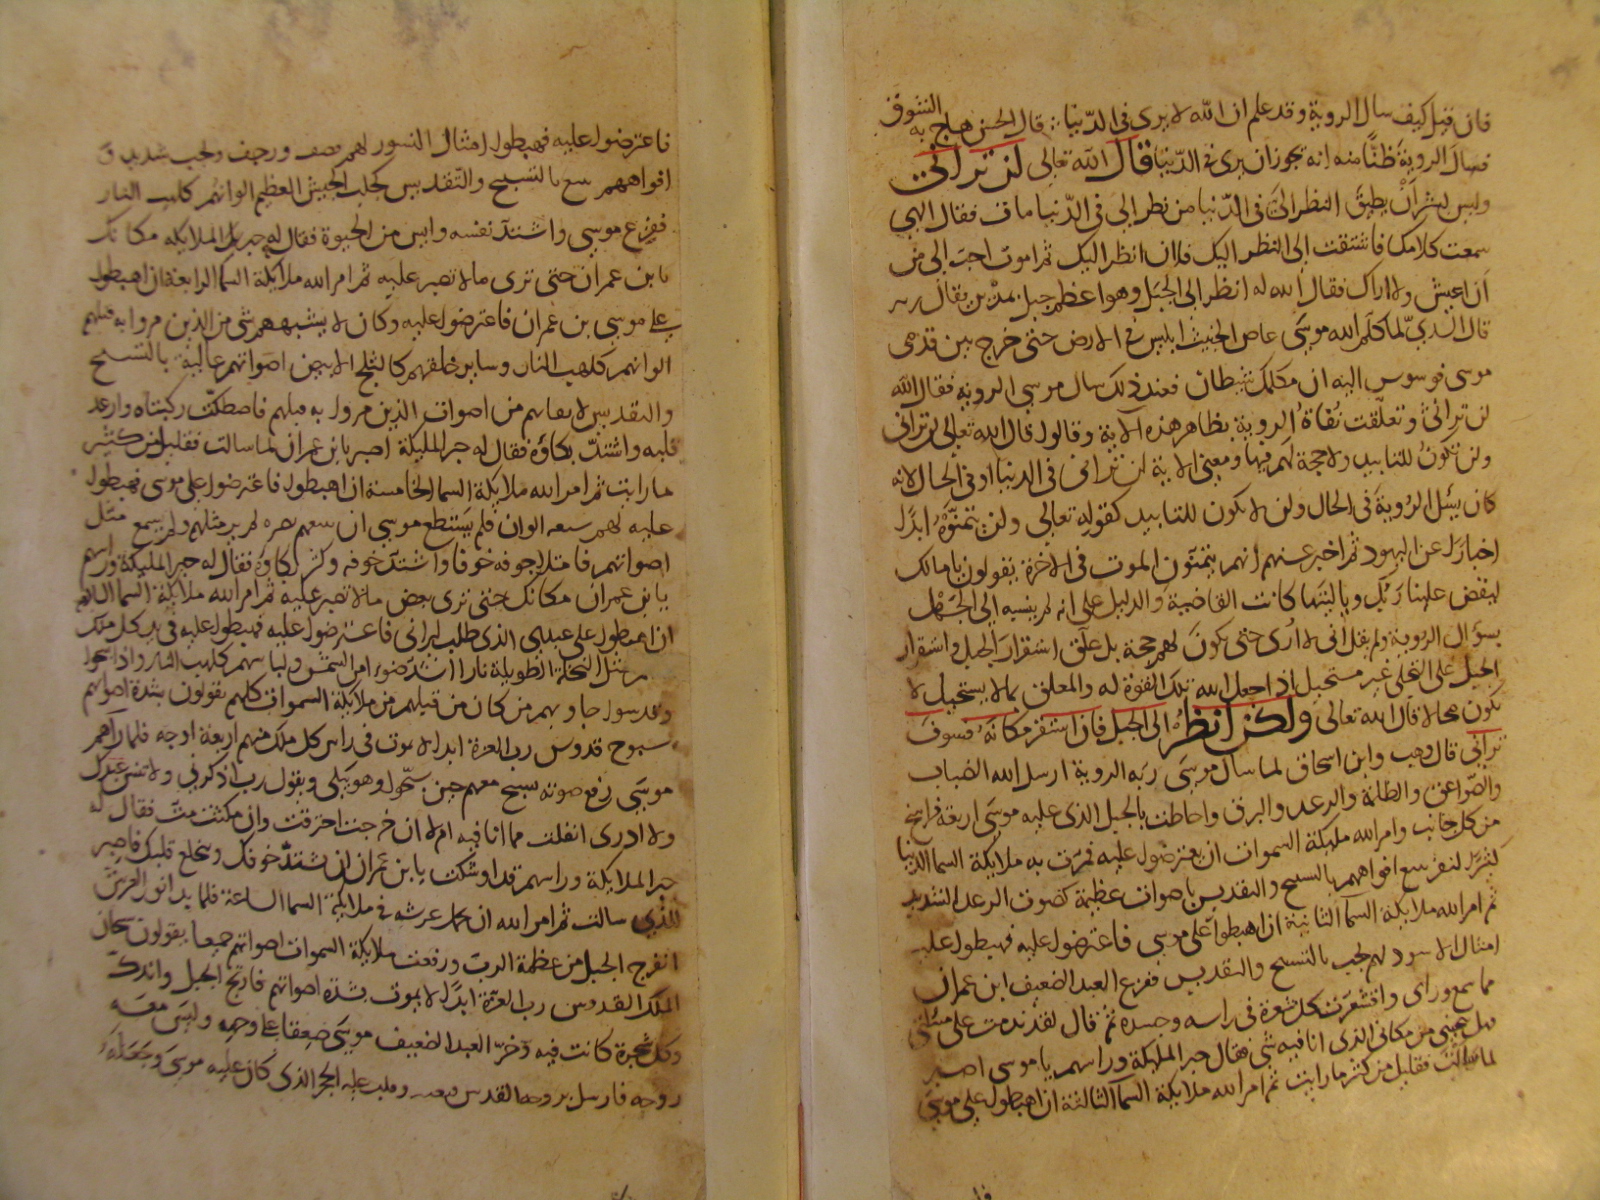 فان قيل كيف سال الروية وقد علم ان الله لا يرى في الدنيا قال الحسن هاج به الشوق
فسال الروية ظنا منه انه يجوز ان يرى في الدنيا قال الله تعالى لن تراني
وليس لبشر أن يطيق النظر الي في الدنيا من نظر الي في الدنيا مات فقال الهي
سمعت كلامك فاشتقت الى النظر اليك فلان انظر اليك ثم اموت احب الي من
ان اعيش ولا اراك فقال الله له انظر الى الجبل وهو اعظم جبل بمدين يقال
قال السدي لما كلم الله موسى غاص الخبيث ابليس في الارض حتى خرج بين قدمي
موسى فوسوس اليه ان مكلمك شيطان فعند ذلك سال موسي الروية فقال الله
لن تراني وتعلقت نفاة الروية بظاهر هذه الاية وقالوا قال الله تعالى لن تراني
ولن تكون للتابيد ولا حجة لهم فيها ومعنى الاية لن تراني في الدنيا او في الحال لانه
كان يسئل الروية في الحال ولن لا تكون للتابيد كقوله تعالى ولن يتمنوه ابدا
اخبارا عن اليهود ثم اخبر عنهم انهم يتمنون الموت في الاخرة يقولون يا مالك
ليقض علينا ربك ويا ليتها كانت القاضية والدليل على انه لم ينسبه الى الجهل
بسؤال الروية ولم يقل اني لا ارى حتى يكون لهم حجة بل علق استقرار الجبل واستقرار
الجبل على التجلي غير مستحيل اذا جعل الله تلك القوة له والمعلق بما لا يستحيل لا
يكون محالا قال الله تعالى ولكن انظر الى الجبل فان استقر مكانه فسوف
تراني قال وهب وابن اسحاق لما سال موسى ربه الروية ارسل الله الضباب
والصواعق والظلمة والرعد والبرق واحاطت بالجبل الذي عليه موسى اربعة فراسخ
من كل جانب وامر الله مليكة السموات ان يعترضوا عليه فمرت به ملايكة السما الدنيا
كثيران البقر تنبع افواههم بالتسبيح والتقديس باصوات عظيمة كصوت الرعد الشديد
ثم امر الله ملايكة السما الثانية ان اهبطوا على موسى فاعترضوا عليه فهبطوا عليه
امثال الاسود لهم لجب بالتسبيح والتقديس ففزع العبد الضعيف ابن عمران
مما سمع وراى واقشعرت كل شعرة في راسه وجسده ثم قال لقد ندمت على مسئلتي
فهل ينجيني من مكاني الذي انا فيه شي فقال حبر المليكة وراسهم يا موسى اصبر
لما سالت فقليل من كثير ما رايت ثم امر الله ملايكة السما الثالثة ان اهبطوا على موسى
فاعترضوا عليه فهبطوا امثال النسور لهم قصف ورجف ولجب شديد
افواههم تنبع بالتسبيح والتقديس كجلب الجيش العظيم الوانهم كلهب النار
ففزع موسى واشتد نفسه وايس من الحيوة فقال له حبر الملايكة مكانك
يا بن عمران حتى ترى ما لا تصبر عليه ثم امر الله ملايكة السما الرابعة ان اهبطوا
على موسى بن عمران فاعترضوا عليه وكان لا يشبههم شي من الذين مروا به قبلهم
الوانهم كلهب النار وساير خلقهم كالثلج الابيض اصواتهم عالية بالتسبيح
والتقديس لا يقاربهم من اصوات الذين مروا به قبلهم فاصطكت ركبتاه وارعد
قلبه واشتد بكاؤه فقال له حبر المليكة اصبر يا بن عمران لما سالت فقليل من كثير
ما رايت ثم امر الله ملايكة السما الخامسة ان اهبطوا فاعترضوا على موسى فهبطوا
عليه لهم سبعة الوان فلم يستطع موسى ان يتبعهم بصره لم ير مثلهم ولم يسمع مثل
اصواتهم فامتلا جوفه خوفا واشتد خوفه وكثر بكاؤه فقال له حبر المليكة وراسهم
يا بن عمران مكانك حتى ترى بعض ما لا تصبر عليه ثم امر الله ملايكة السما
ان اهبطوا على عبدي الذي طلب ليراني فاعترضوا عليه فهبطوا عليه في يد كل ملك
مثل النخلة الطويلة نارا اشد ضوءا من الشمس ولباسهم كلهب النار واذا سبحوا
وقدسوا جاوبهم من كان من قبلهم من ملايكة السموات كلهم يقولون بشدة اصواتهم
سبوح قدوس رب العزة ابدا لا يموت في راس كل ملك منهم اربعة اوجه فلما راهم
موسى رفع صوته يسبح معهم حين سبحوا وهو يبكي ويقول رب اذكرني ولا تنس عبدك
ولا ادري انفلت مما انا فيه ام لا ان خرجت احترقت وان مكثت مت فقال له
حبر الملايكة وراسهم قد اوشكت يا بن عمران ان يشتد خوفك وينخلع قلبك فاصبر
للذي سالت ثم امر الله ان يحمل عرشه في ملايكة السما السابعة فلما بدا نور العرش
انفرج الجبل من عظمة الرب ورفعت ملايكة السموات اصواتهم جميعا يقولون سبحان
الملك القدوس رب العزة ابدا لا يموت بشدة اصواتهم فارتج الجبل واندك
وكل شجرة كانت فيه وخر العبد الضعيف موسى صعقا على وجهه وليس معه
روحه فارسل بروحه القدس وقلب عليه الحجر الذي كان عليه موسى وجعله